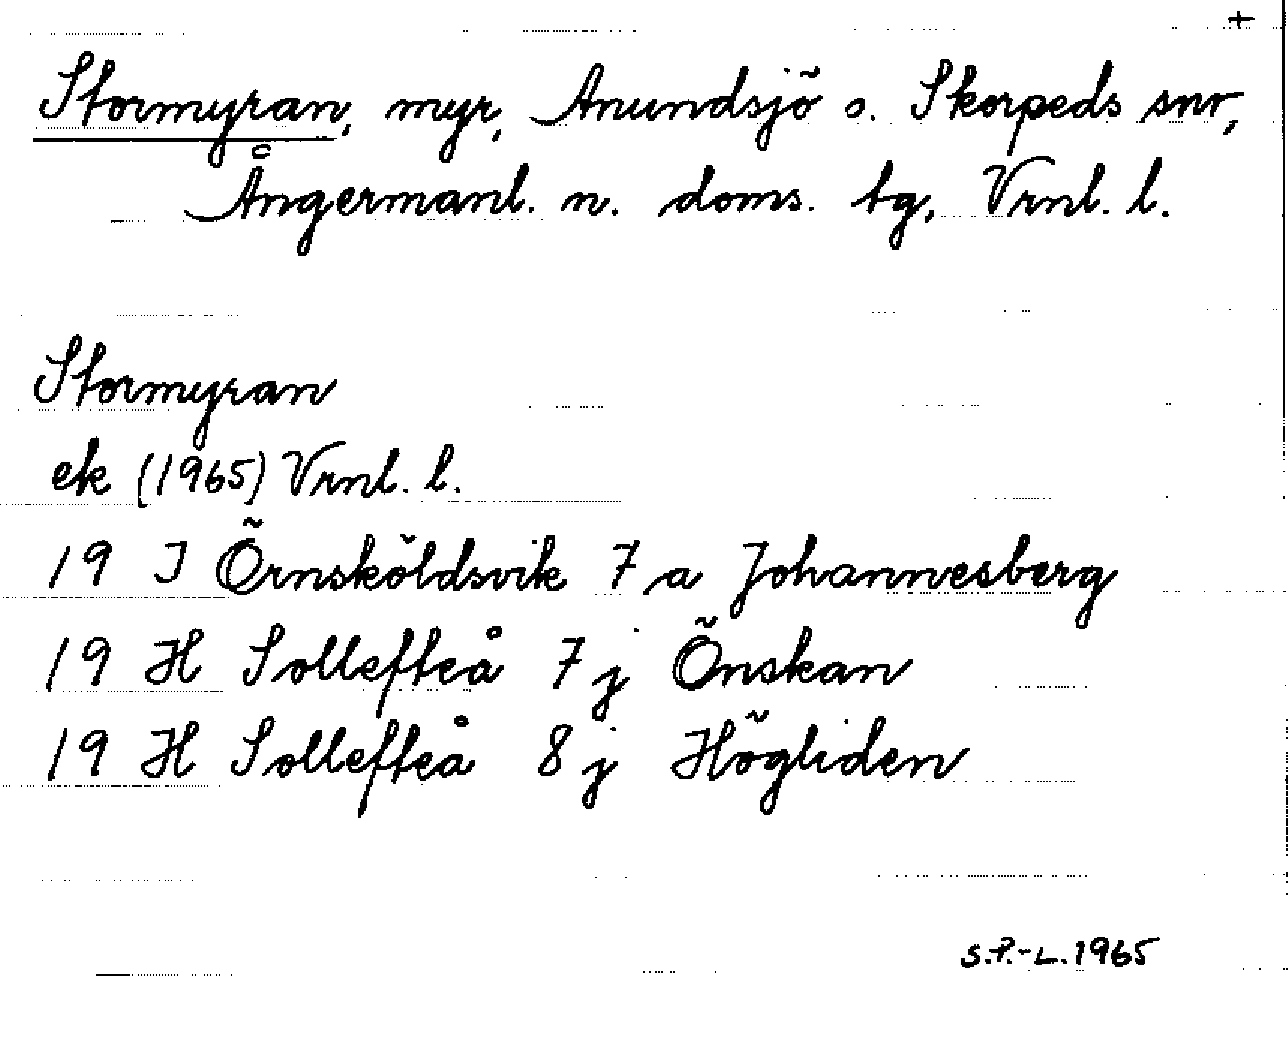 +
Stormyran, myr, Anundsjö o. Skorpeds snr,
Ångermanl. n. doms. tg, Vrnl. l.
Stormyran
ek (1965) Vrnl. l.
19 I Örnsköldsvik 7 a Johannesberg
19 H Sollefteå 7 j Önskan
19 H Sollefteå 8 j Högliden
S.P.-L. 1965